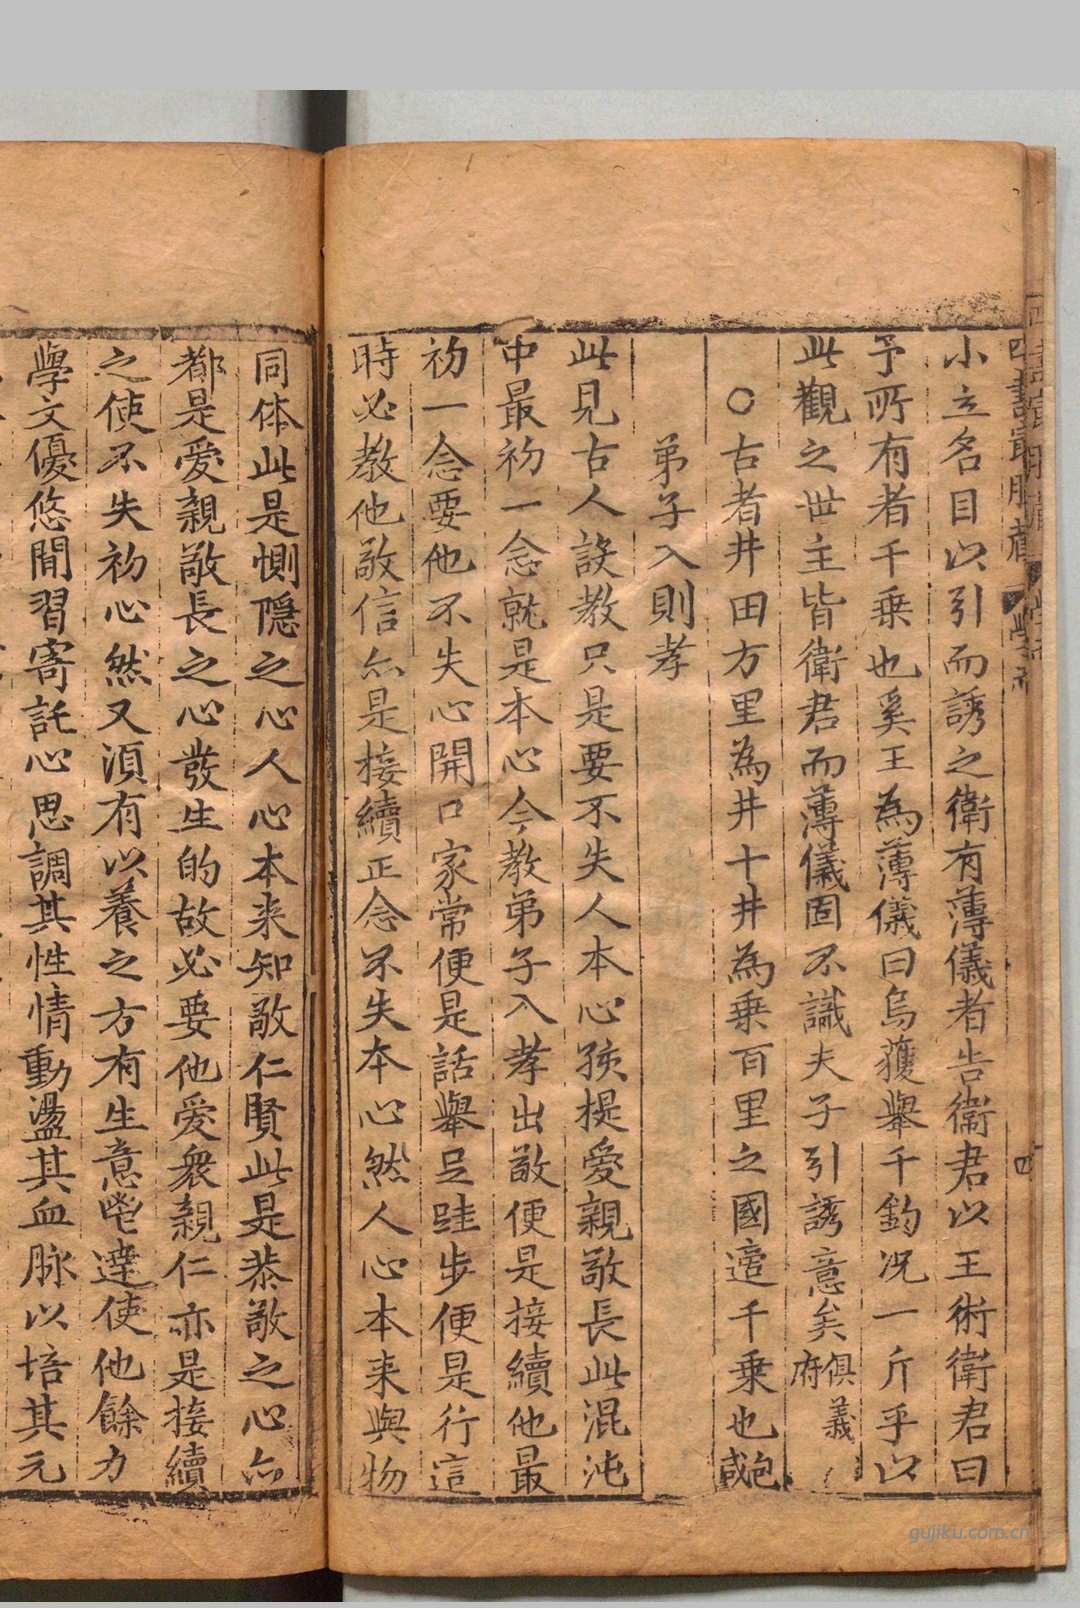 小立名目以引而誘之衛有薄儀者告衛君以王術衛君曰
予所有者千乗也奚王為薄儀曰烏獲舉千鈞况一斤乎以
此觀之世主皆衛君而薄儀固不識夫子引誘意矣俱義府
○古者井田方里為井十井為乗百里之國適千乗也包咸
弟子入則孝
此見古人設教只是要不失人本心孩提愛親敬長此混沌
中最初一念就是本心今教弟子入孝出敬便是接續他最
初一念要他不失心開口家常便是話舉足跬步便是行這
時必教他敬信亦是接續正念不失本心然人心本来與物
同体此是惻隠之心人心本来知敬仁賢此是恭敬之心亦
都是爱親敬長之心發生的故必要他爱衆親仁亦是接續
之使不失初心然又湏有以養之方有生意
達使他餘力
學文優悠間習寄託心思調其性情動盪其血脉以培其元
四
gujiku.com.cn